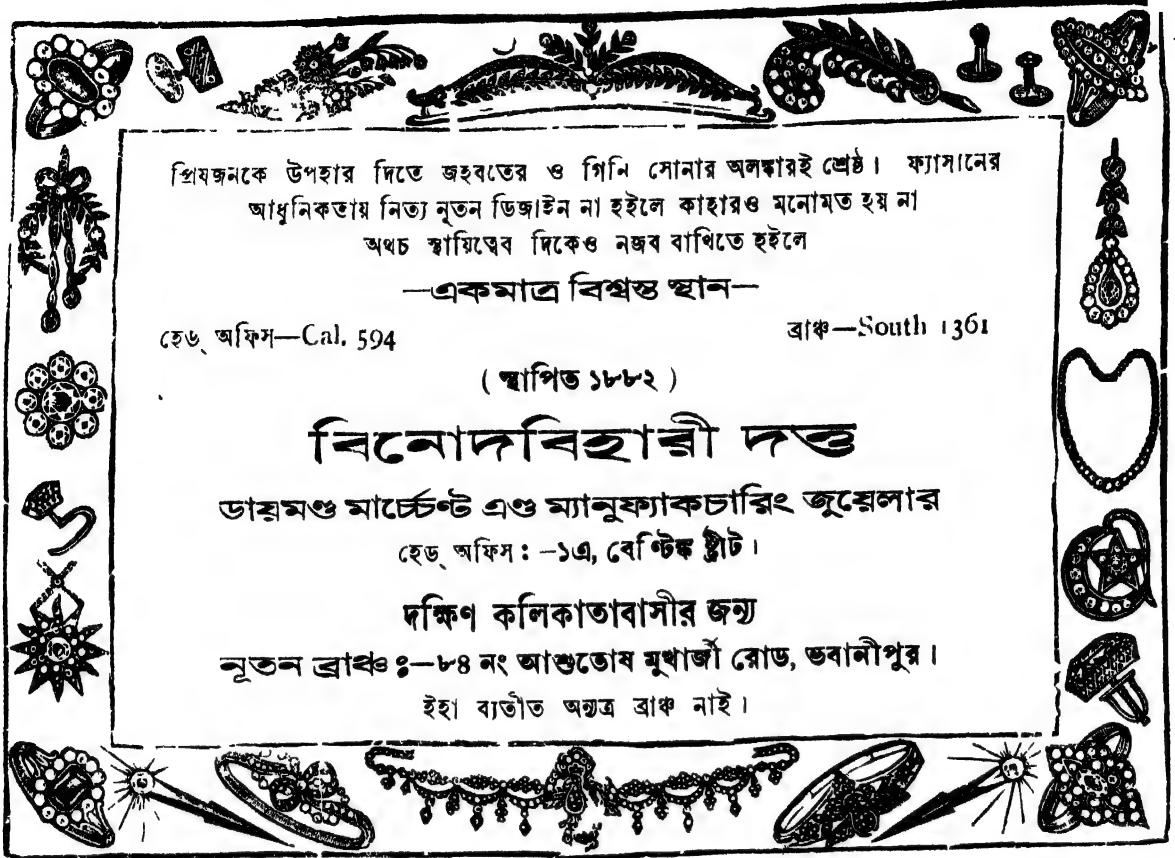 প্রিয়জনকে উপহার দিতে জহরতের ও গিনি সোনার অলঙ্কারই শ্রেষ্ঠ। ফ্যাসানের
আধুনিকতায় নিত্য নূতন ডিজাইন না হইলে কাহারও মনোমত হয় না
অথচ স্থায়িত্বের দিকেও নজর রাখিতে হইলে
—একমাত্র বিশ্বস্ত স্থান—
হেড্ অফিস—Cal. 594 ব্রাঞ্চ—South 1361
( স্থাপিত ১৮৮২ )
বিনোদবিহারী দত্ত
ডায়মণ্ড মার্চ্চেণ্ট এণ্ড ম্যানুফ্যাকচারিং জুয়েলার
হেড্ অফিস : -১এ, বেণ্টিঙ্ক ষ্ট্রীট।
দক্ষিণ কলিকাতাবাসীর জন্য
নূতন ব্রাঞ্চ ঃ—৮৪ নং আশুতোষ মুখার্জী রোড, ভবানীপুর।
ইহা ব্যতীত অন্যত্র ব্রাঞ্চ নাই।